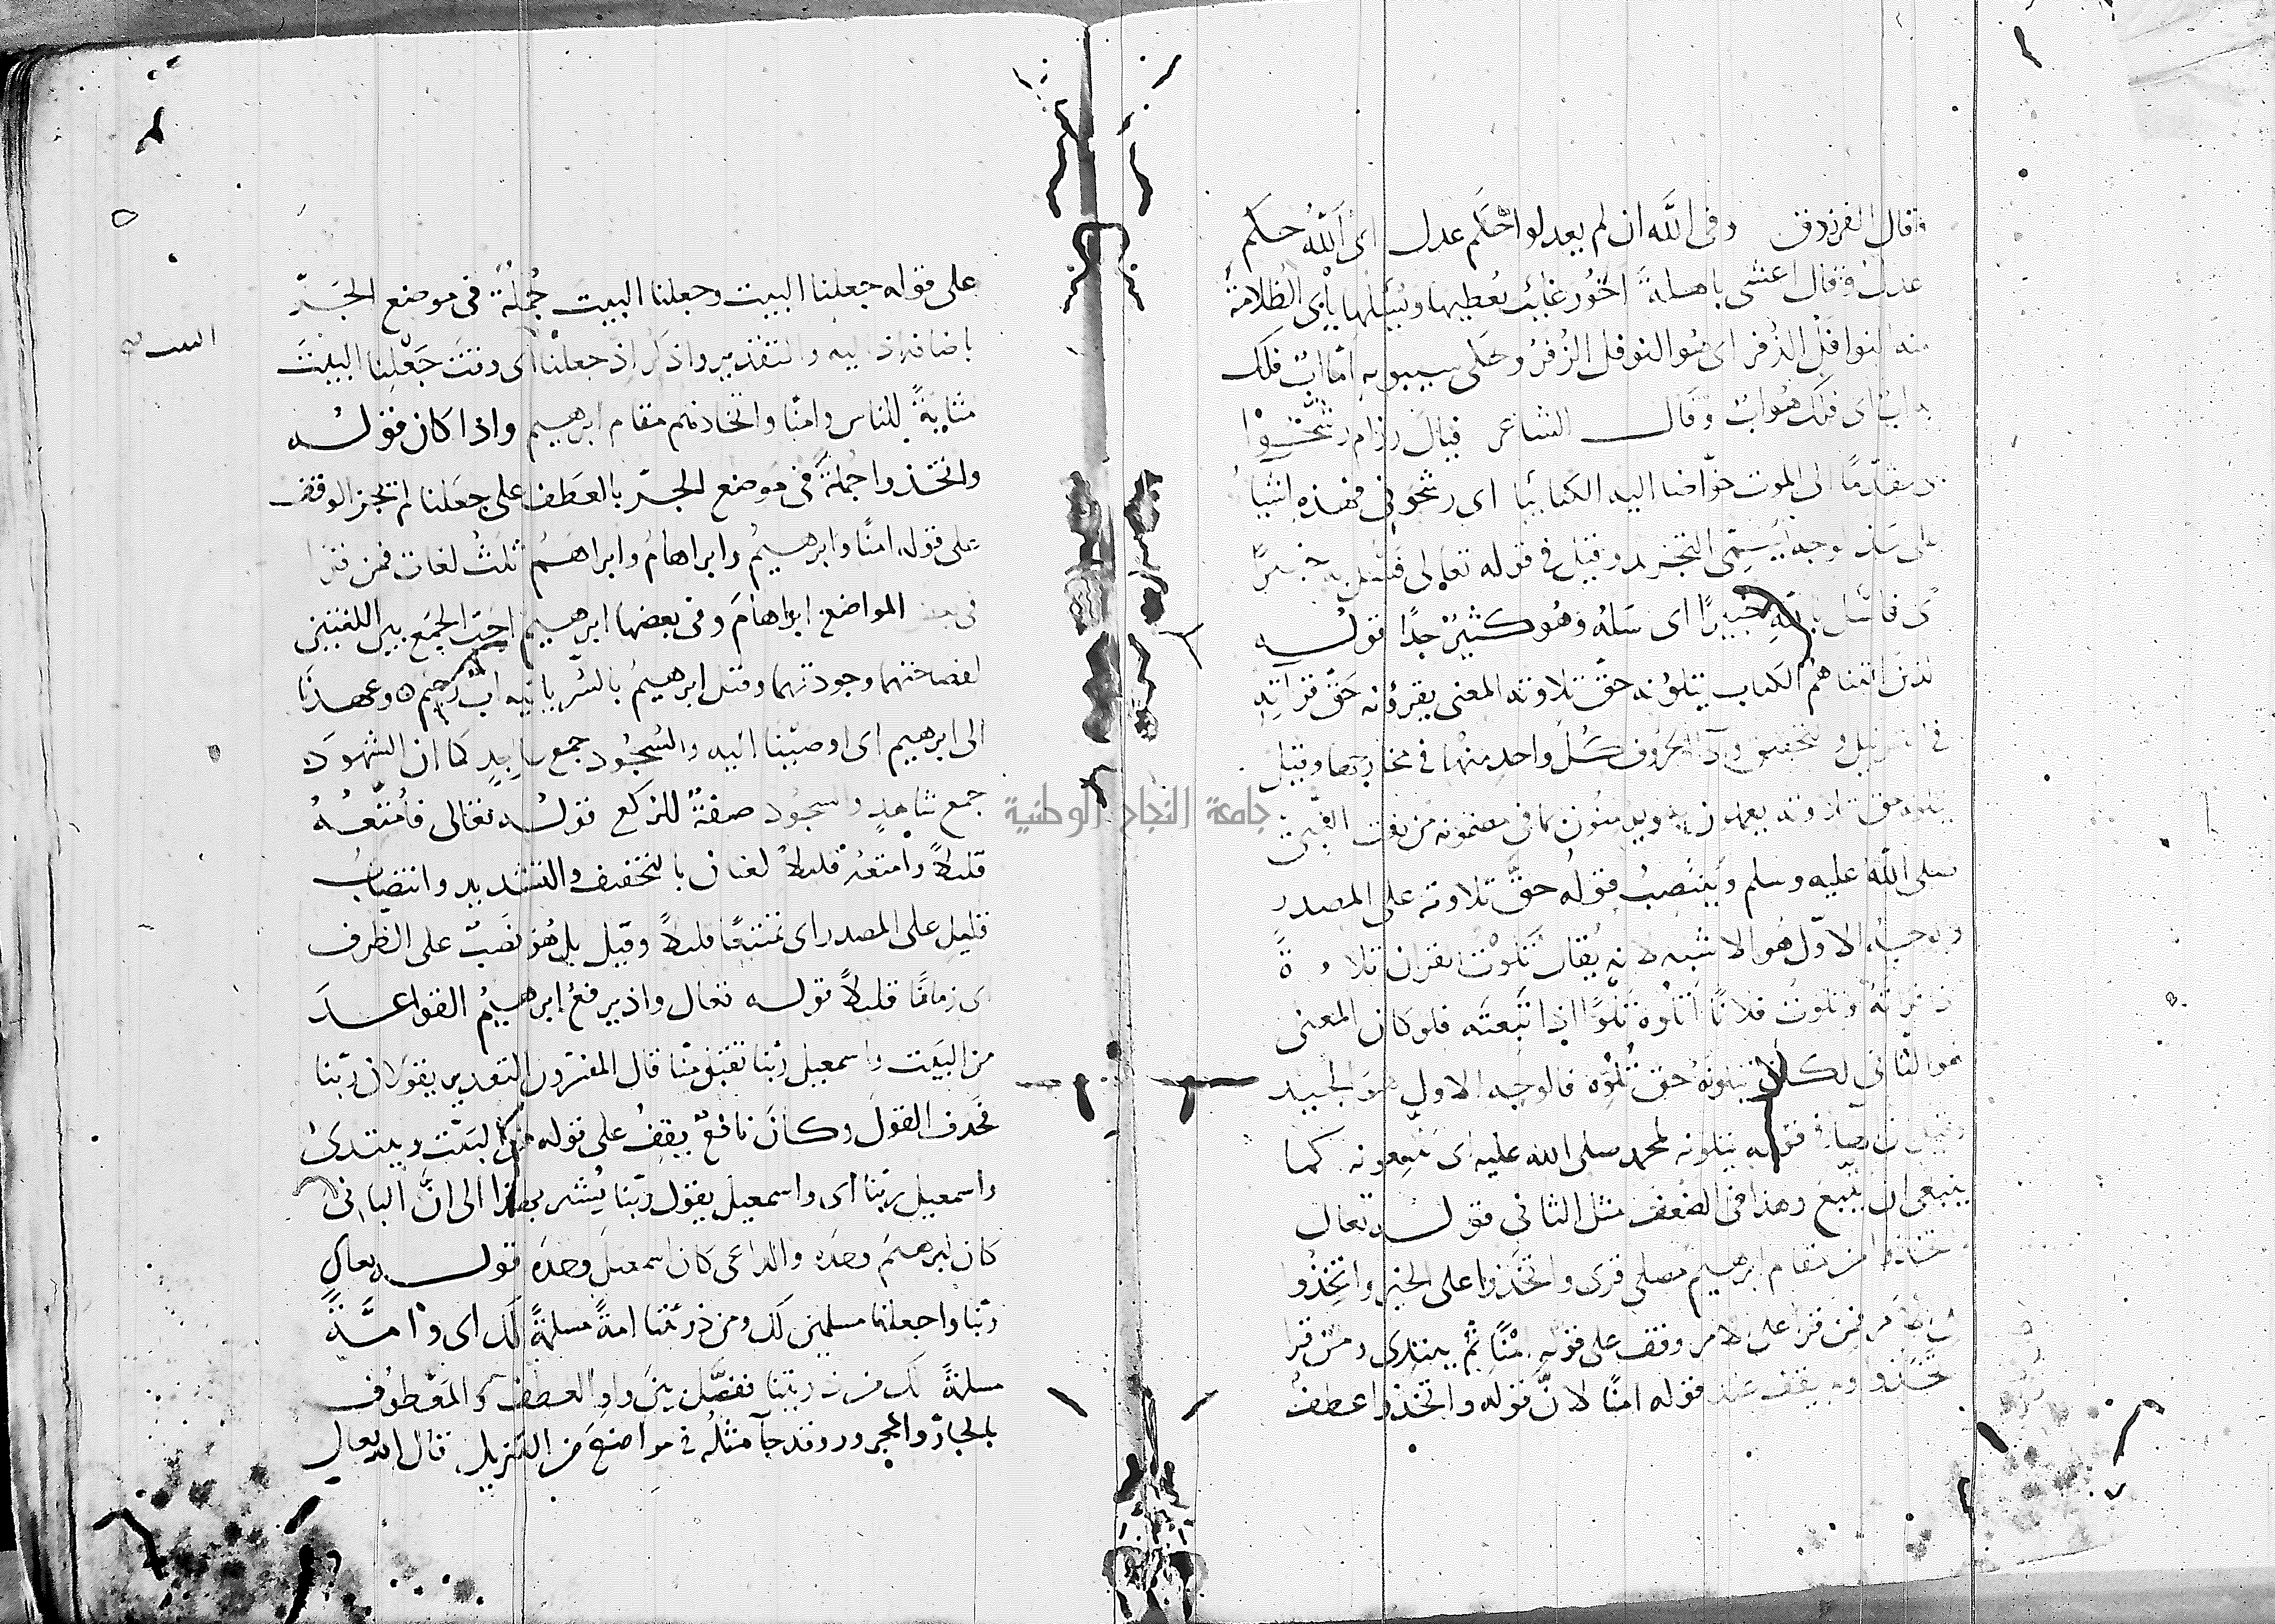 وقال الفرزدق وفى الله ان لم يعدلوا حكم عدل اى الله حكم
عدل وقال اعشى باهلة اخور غائب يعطيها ويسئلها يأبى الظلامة
منه النوافل الزفر اى هو النوفل الزفر وحكى سيبويه اما اب فلك
به اب اى فلك هو اب وقال الشاعر فيال رزام رشحوا
مقدما الى الموت خواضا اليه الكتائبا اى رشحونى فهذه اشيا
على وجه يسمى التجريد وقيل فى قوله تعالى فسئل به خبيرا
اى فاسئل بالله خبيرا اى سله وهو كثير جدا قوله
الذين اتيناهم الكتاب يتلونه حق تلاوته المعنى يقرؤنه حق قراته
فى الترتيل والتحقيق الحروف كل واحد منها فى مخارجها وقيل
يتلونه حق تلاوته يعملون به ويؤمنون بما فى مضمونه من نعت النبى
صلى الله عليه وسلم وينتصب قوله حق تلاوته على المصدر
والوجه الاول هو الاشبه لانه يقال تلوت القران تلاوة
قراته وتلوت فلانا اتلوه تلوا اذا تبعته فلو كان المعنى
هو الثانى لكان يتلونه حق تلوه فالوجه الاول هو الجيد
وقيل ان الهاء فى قوله يتلونه لمحمد صلى الله عليه اى يتبعونه كما
ينبغى ان يتبع وهذا فى الضعف مثل الثانى قوله تعالى
واتخذوا من مقام ابرهيم مصلى قرى واتخذوا على الخبر واتخذوا
على الامر فمن قرا على الامر وقف على قوله امنا ثم يبتدى ومن قرا
واتخذوا لم يقف عند قوله امنا لان قوله واتخذوا عطف
على قوله جعلنا البيت وجعلنا البيت جملة فى موضع الجر
باضافة اذ اليه والتقدير واذكر اذ جعلنا اى وقت جعلنا البيت
مثابة للناس وامنا واتخاذهم مقام ابرهيم واذا كان قوله
واتخذوا جملة فى موضع الجر بالعطف على جعلنا لم تجز الوقف
على قوله امنا وابرهيم وابراهام وابراهم ثلث لغات فمن قرا
فى بعض المواضع ابراهام وفى بعضها ابرهيم احب الجمع بين اللغتين
لفصاحتهما وجودتهما وقيل ابرهيم بالسريانيه اب رحيم وعهدنا
الى ابرهيم اى اوصينا اليه والسجود جمع ساجد كما ان الشهود
جمع شاهد والسجود صفة للركع قوله تعالى فامتعه
قليلا وامتعه قليلا لغتان بالتخفيف والتشديد وانتصاب
قليل على المصدر اى تمتيعا قليلا وقيل بل هو نصب على الظرف
اى زمانا قليلا قوله تعالى واذ يرفع ابرهيم القواعد
من البيت واسمعيل ربنا تقبل منا قال المفسرون التقدير يقولان ربنا
فحذف القول وكان نافع يقف على قوله من البيت ويبتدئ
واسمعيل ربنا اى واسمعيل يقول ربنا يشير بهذا الى ان البانى
كان ابرهيم وحده والداعى كان اسمعيل وحده قوله تعالى
ربنا واجعلنا مسلمين لك ومن ذريتنا امة مسلمة لك اى وامة
مسلمة لك من ذريتنا ففصل بين واو العطف والمعطوف
بالجار والمجرور وقد جآ مثله فى مواضع من التنزيل قال الله تعالى